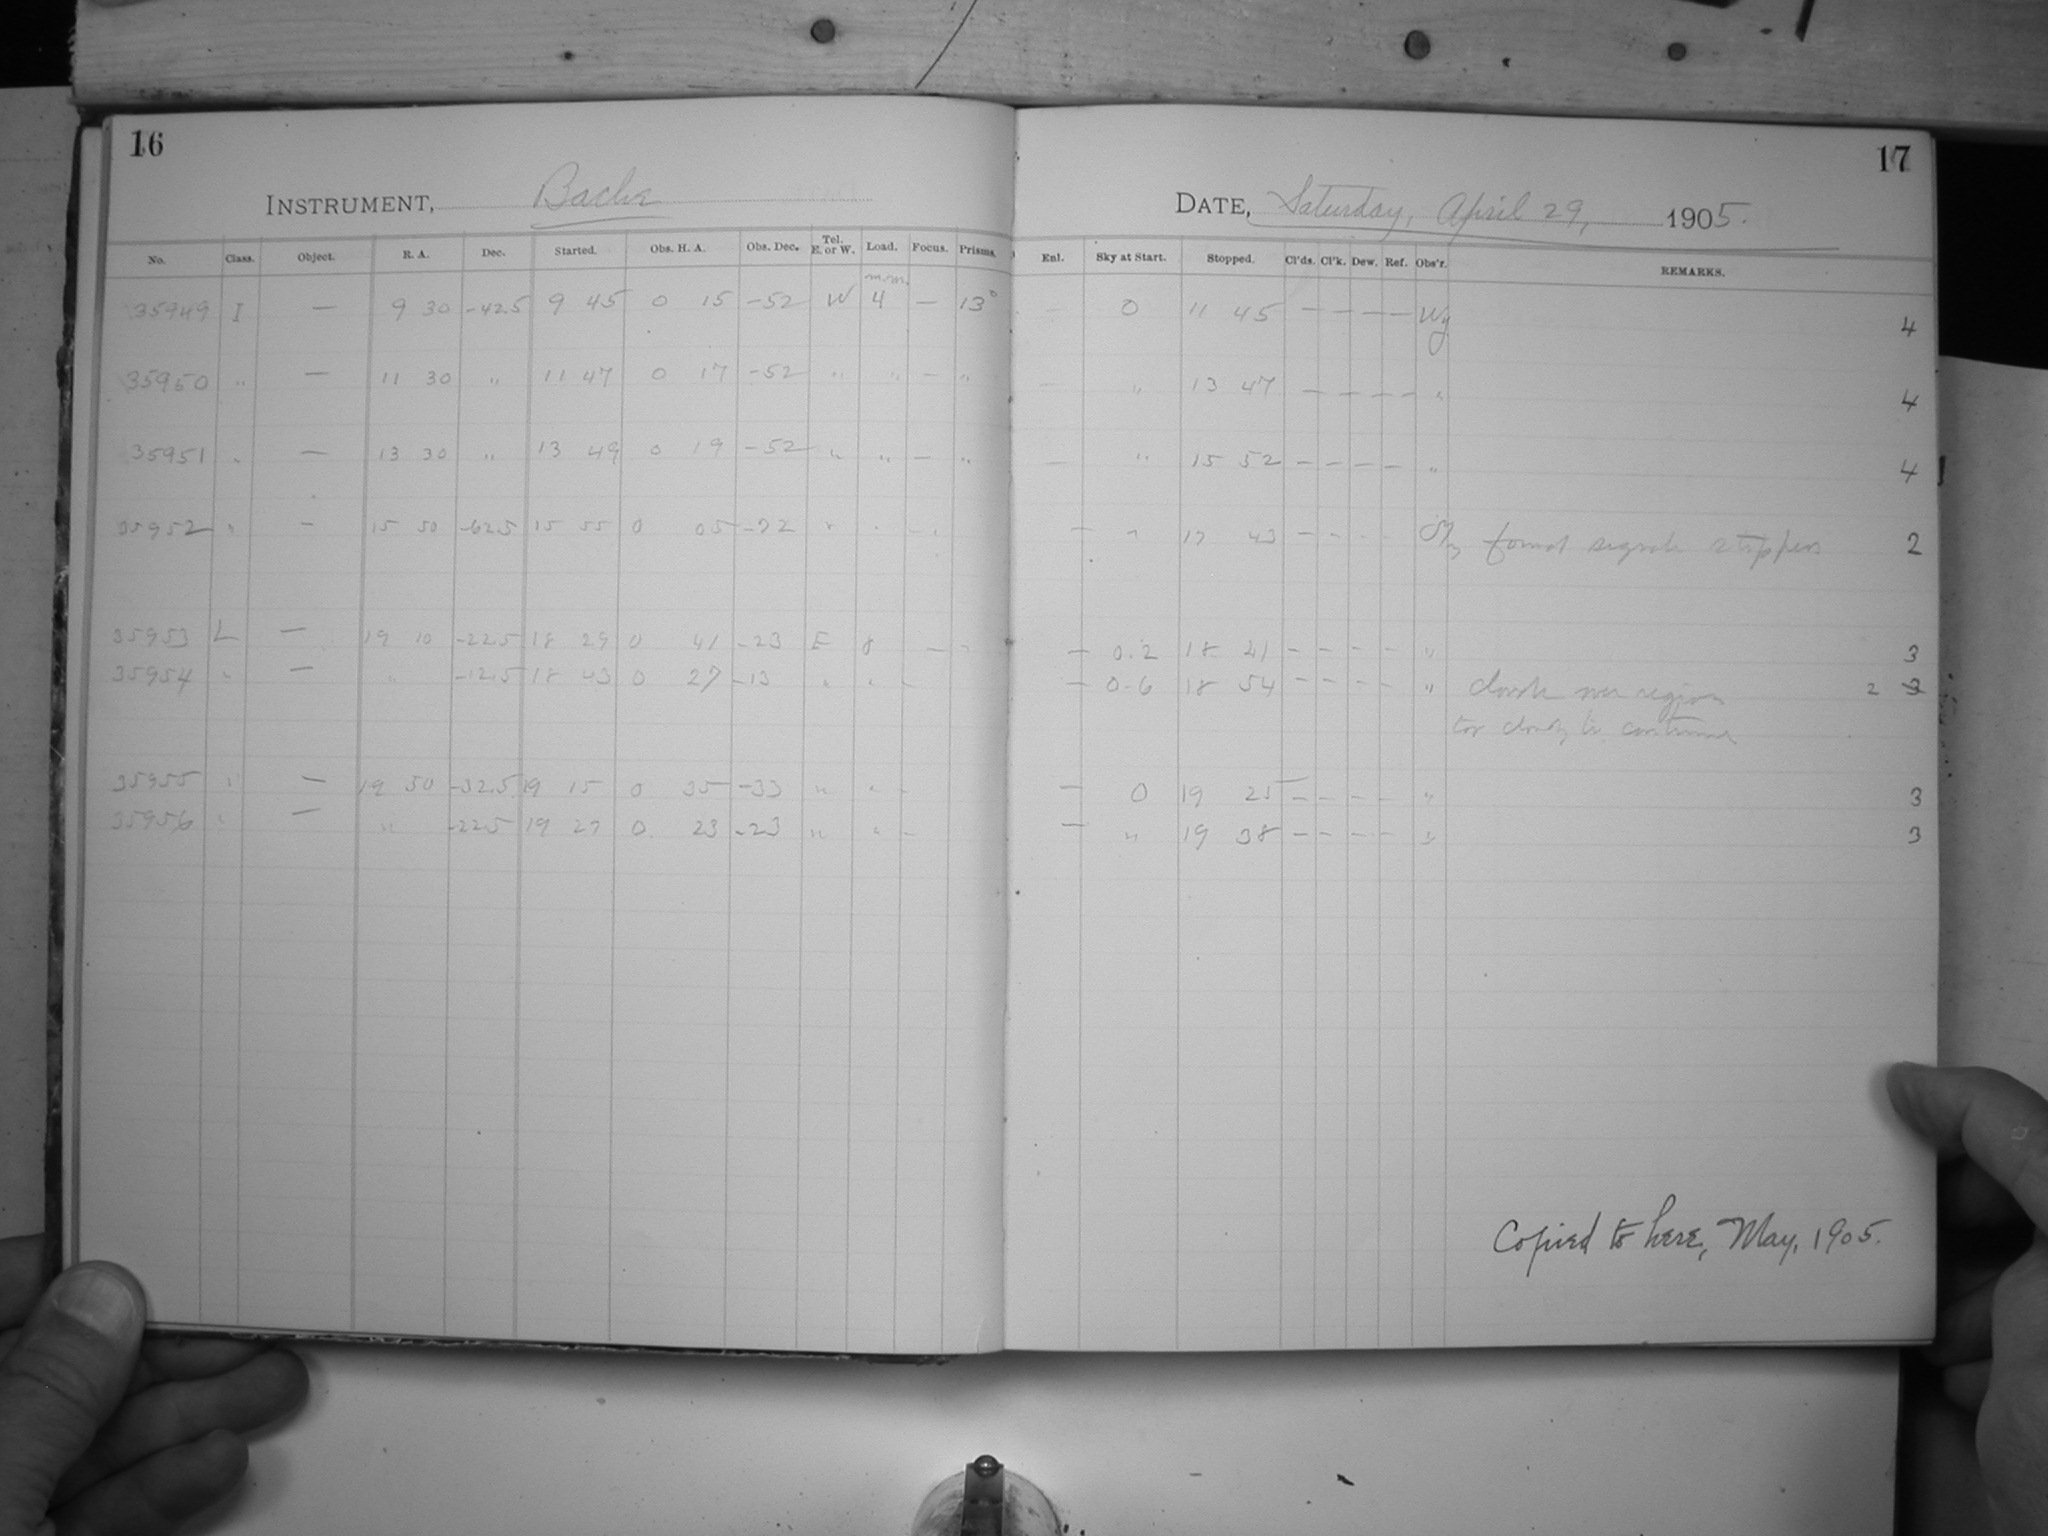 16
INSTRUMENT, Bache
No. Class. Object. R. A. Dec. Started. Obs. H. A. Obs. Dec. Tel. E. or W. Load. Focus. Prisms.
m.m.
35949 I — 9 30 -42.5 9 45 0 15 -52 W 4 — 13°
35950 " — 11 30 " 11 47 0 17 -52 " " — "
35951 " — 13 30 " 13 49 0 19 -52 " " — "
35952 " — 15 50 -62.5 15 55 0 05 -72 " " -
35953 L — 19 10 -22.5 18 29 0 41 -23 E 8 — -
35954 " — " -12.5 18 43 0 27 -13 " " -
35955 " — 19 50 -32.5 19 15 0 35 -33 " " -
35956 " — " -22.5 19 27 0 23 -23 " " -
17
DATE, Saturday, April 29, 1905.
Enl. Sky at Start. Stopped. Cl'ds. Cl'k. Dew. Ref. Obs'r. REMARKS.
— 0 11 45 — — — — Wy 4
— " 13 47 — — — — " 4
— " 15 52 — — — — " 4
— " 17 43 — - - - found signals stopped 2
— 0.2 18 41 — — — — " 3
— 0.6 18 54 — — — — " clouds over region 2 3
too cloudy to continue
— 0 19 25 — — — — " 3
— " 19 38 — — — — " 3
Copied to here, May, 1905.